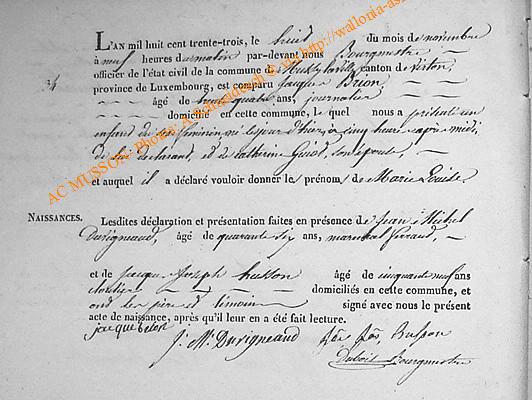 L'AN mil huit cent trente-trois, le huit du mois de novembre
à neuf heures du matin par-devant nous Bourgmestre
officier de l'état civil de la commune de canton de virton,
34 province de Luxembourg, est comparu jacque Brion,
âgé de quatre ans, journalier
domicilié en cette commune, le quel nous a présenté un
enfant du sexe feminin né le jour d'hier, à cinq heure après midi
de lui déclarant, et de Catherine son épouse,
et auquel il a déclaré vouloir donner le prénom de Marie Louise
NAISSANCES. Lesdites déclaration et présentation faites en présence de Jean Michel
Duvigneaud, âgé de quarante six ans, marechal ferrand,
et de jacque joseph husson âgé de cinquante neuf ans
domiciliés en cette commune, et
ont les père et témoin signé avec nous le présent
acte de naissance, après qu'il leur en a été fait lecture.
jacque
J. M. Duvigneaud
Dubois Bourgmestre
AC MUSSON Photo: A.
http://wallonia-as